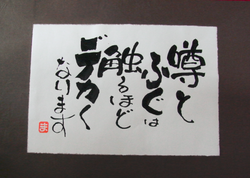 噂と
ふぐは
触るほど
デカく
なります